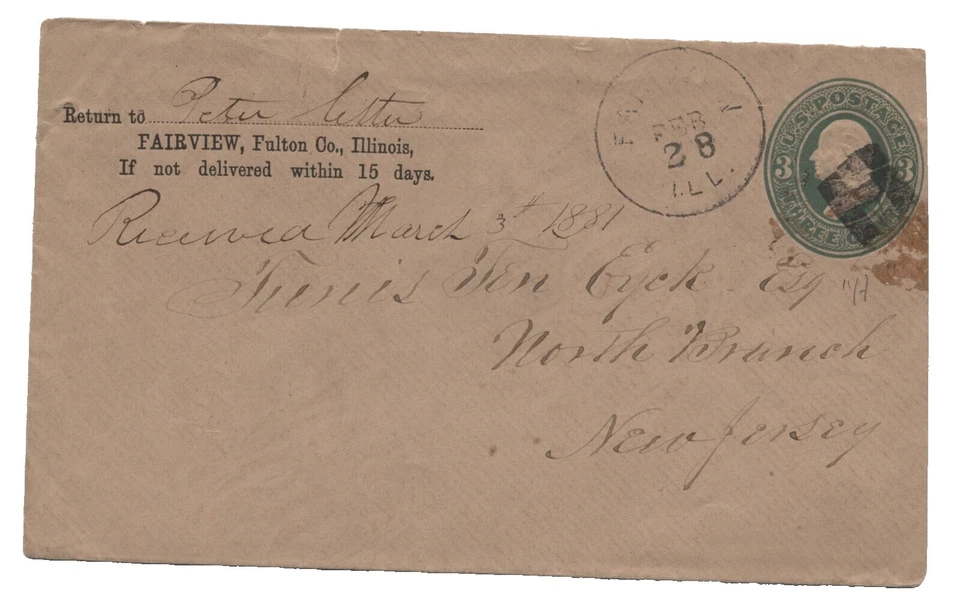 Return to Peter
FAIRVIEW, Fulton Co., Illinois,
If not delivered within 15 days.
FEB
28
ILL.
U.S. POSTAGE
3 3
THREE
Received March 3rd 1881
Tunis Ten Eyck Esq
North Branch
New Jersey